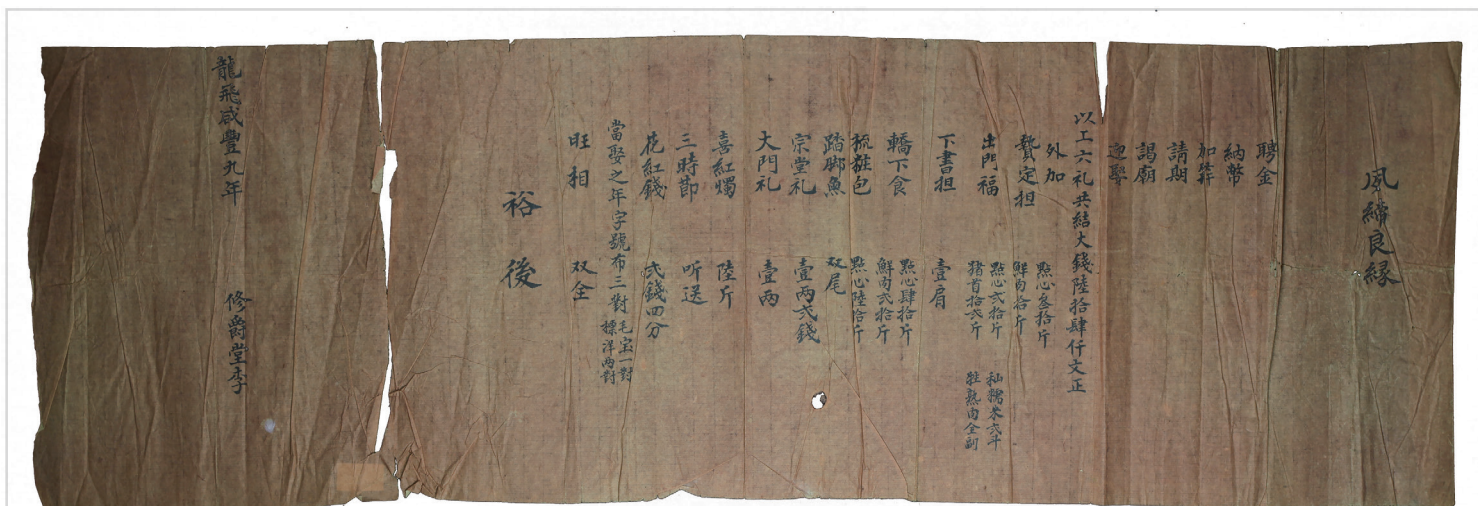 夙締良緣
聘金
納幣
加笄
請期
謁廟
迎娶
以工六礼共結大錢陸拾肆仟文正
外加
點心叁拾斤
贄定担
鮮肉拾斤
出門福
點心弍拾斤
秈糯米弍斗
猪首拾弍斤
牲熟肉全副
下書担
壹肩
轎下食
點心肆拾斤
鮮肉弍拾斤
梳粧包
點心陸拾斤
踏脚魚
双尾
宗堂礼
壹兩弍錢
大門礼
壹兩
喜紅燭
陸斤
三時節
听送
花紅錢
弍錢四分
當娶之年字號布三對
毛宝一對
標洋兩對
旺相
双全
裕後
龍飛咸豐九年
修爵堂李